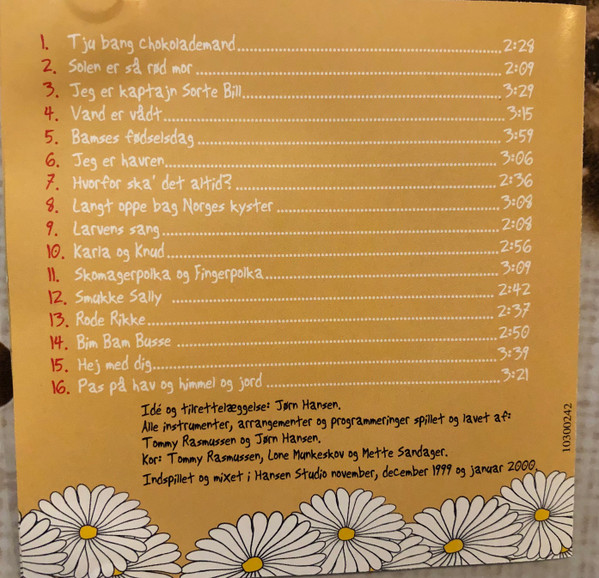 1. Tju bang chokolademand 2:28
2. Solen er så rød mor 2:09
3. Jeg er kaptajn Sorte Bill 3:29
4. Vand er vådt 3:15
5. Bamses fødselsdag 3:59
6. Jeg er havren 3:06
7. Hvorfor ska' det altid? 2:36
8. Langt oppe bag Norges kyster 3:08
9. Larvens sang 2:08
10. Karla og Knud 2:56
11. Skomagerpolka og Fingerpolka 3:09
12. Smukke Sally 2:42
13. Rode Rikke 2:37
14. Bim Bam Busse 2:50
15. Hej med dig 3:39
16. Pas på hav og himmel og jord 3:21
Idé og tilrettelæggelse: Jørn Hansen.
Alle instrumenter, arrangementer og programmeringer spillet og lavet af:
Tommy Rasmussen og Jørn Hansen.
Kor: Tommy Rasmussen, Lone Munkeskov og Mette Sandager.
Indspillet og mixet i Hansen Studio november, december 1999 og januar 2000.
10300242